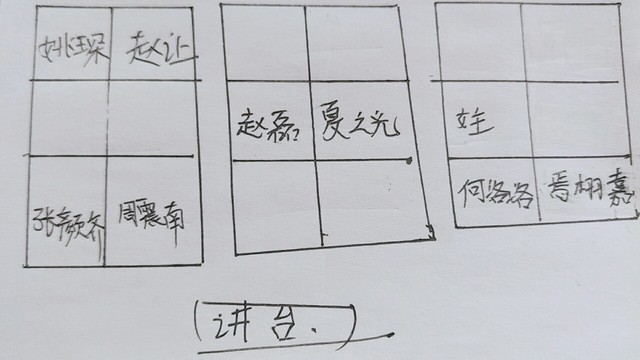 姚琛 赵让
赵磊 夏之光
女主
张颜齐 周震南
何洛洛 焉栩嘉
(讲台.)